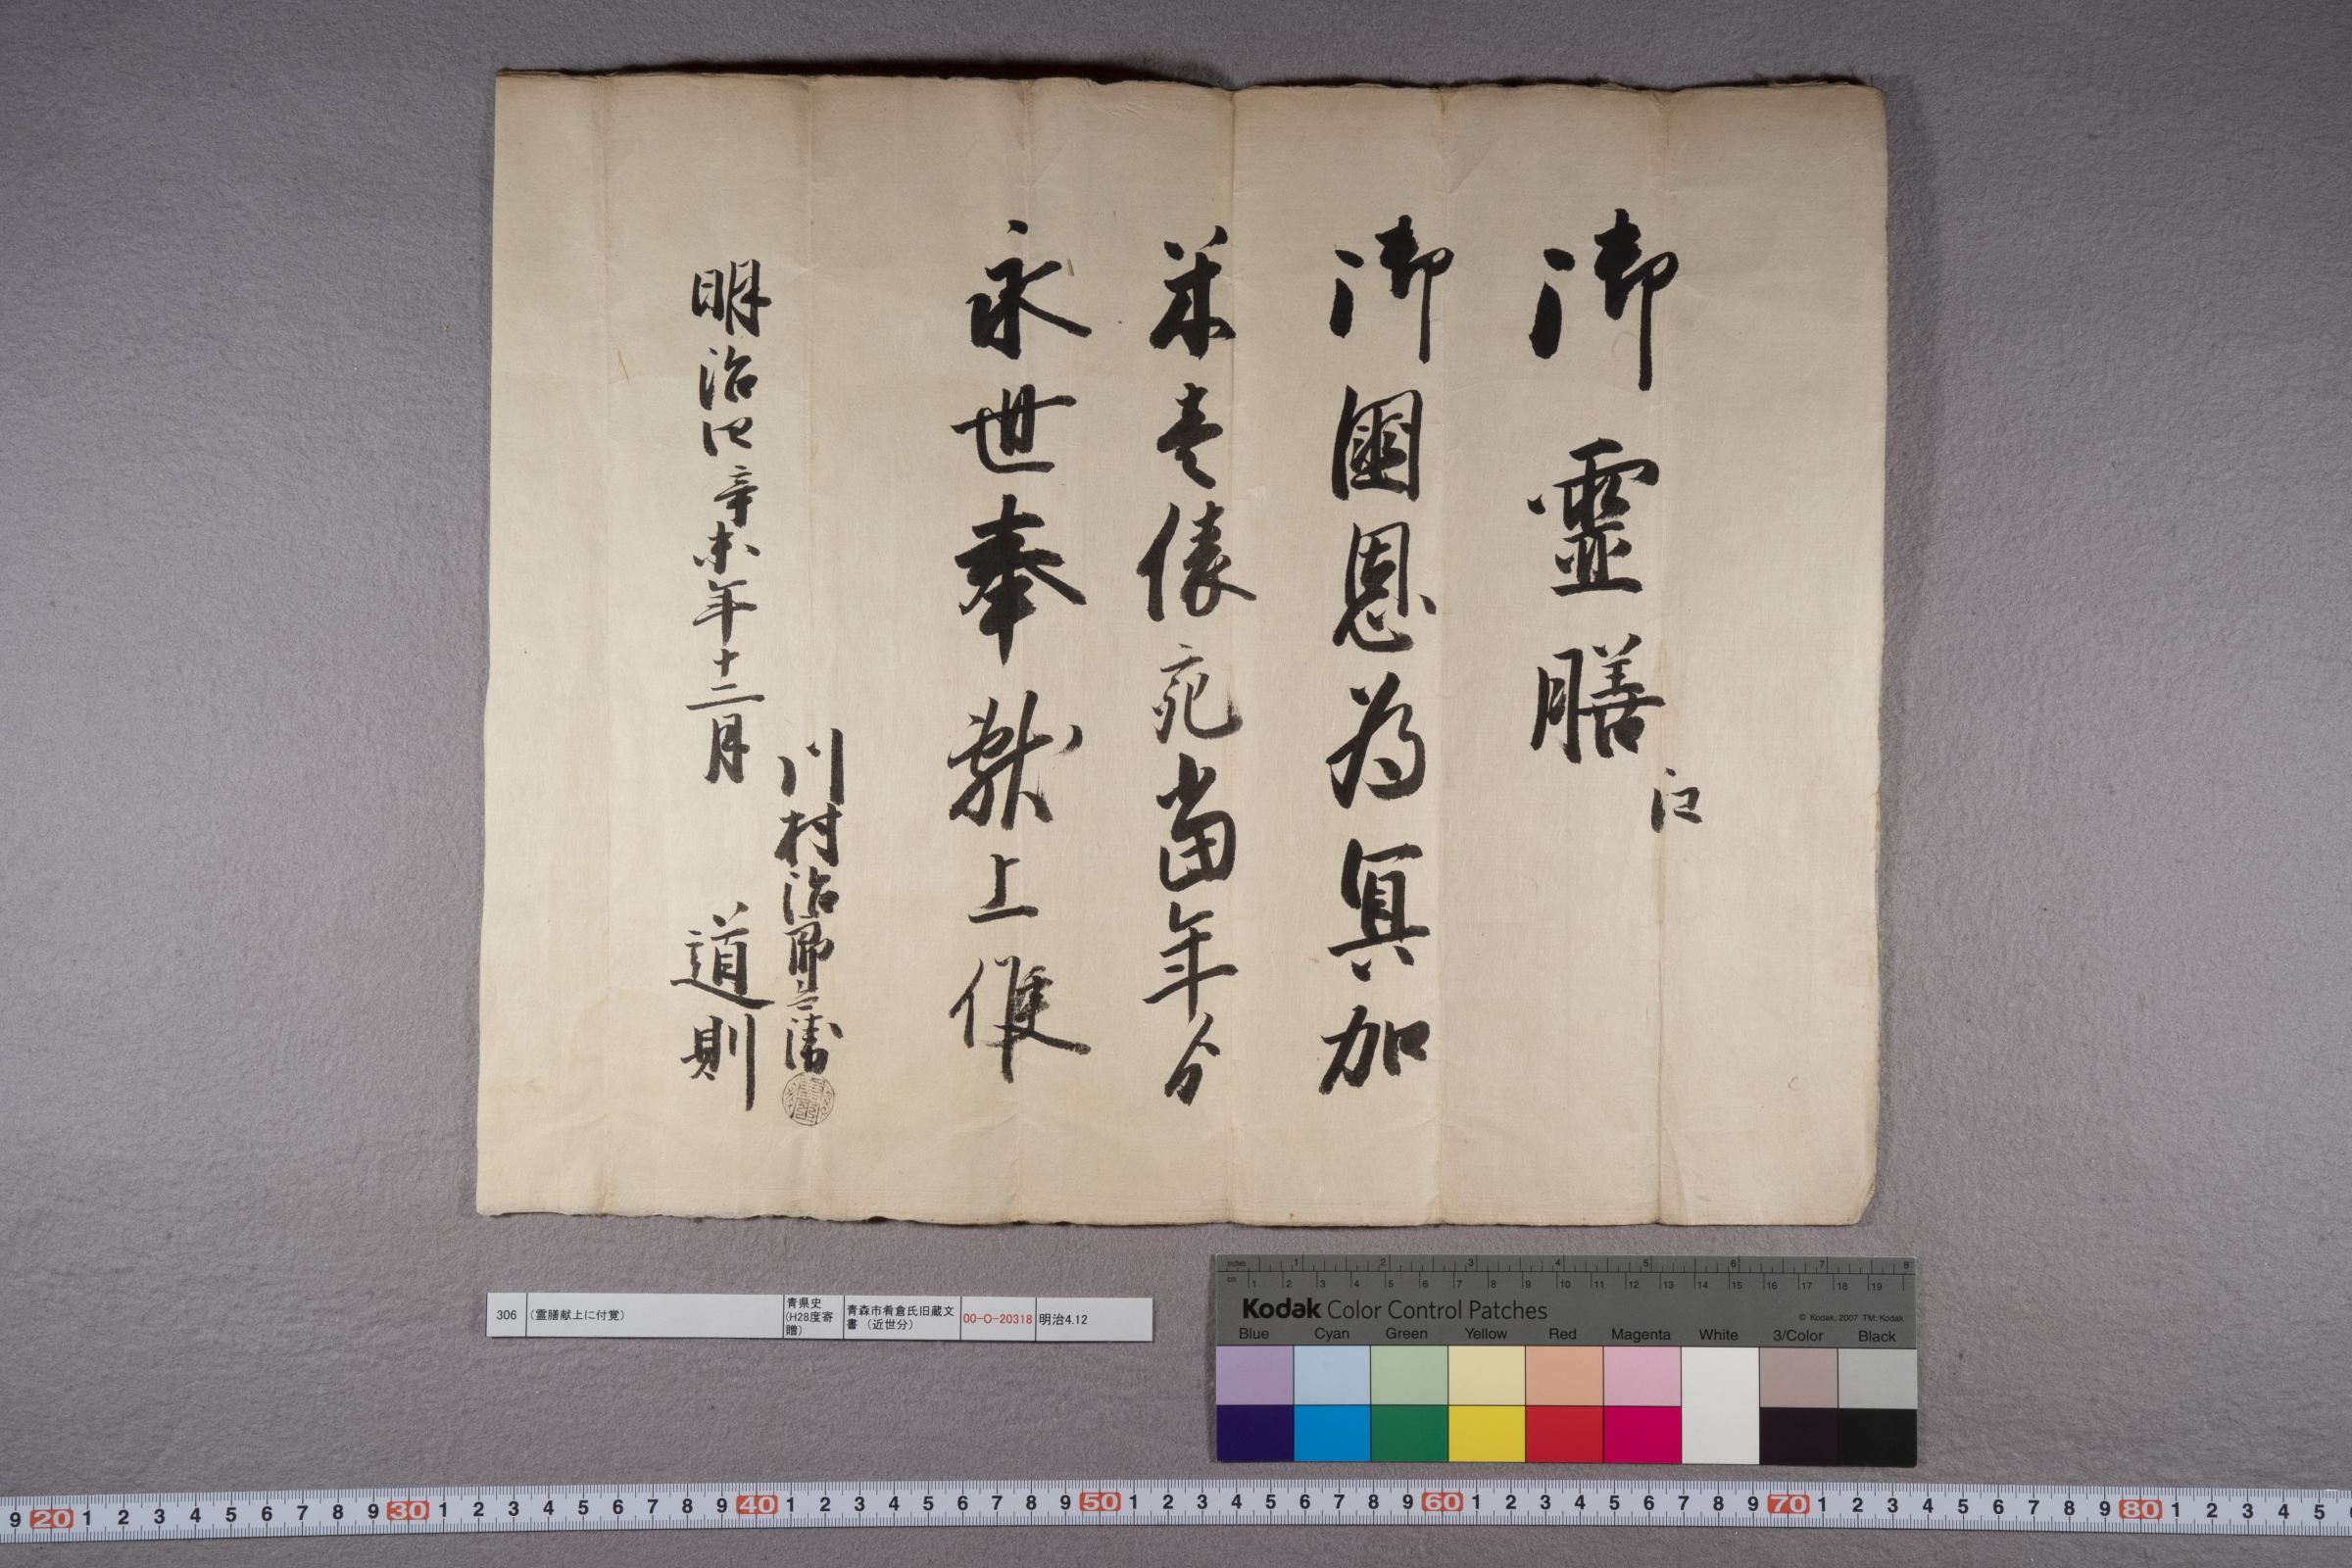 御靈膳江
御國恩為冥加
米壱俵宛當年分
永世奉獻上候
川村治郎兵衛
明治四辛未年十二月
道則
306
(霊膳献上に付覚)
青県史
(H28度寄
贈)
青森市肴倉氏旧蔵文
書 (近世分)
00-O-20318
明治4.12
inches 1 2 3 4 5 6 7 8
cm 1 2 3 4 5 6 7 8 9 10 11 12 13 14 15 16 17 18 19
Kodak Color Control Patches
© Kodak, 2007 TM: Kodak
Blue Cyan Green Yellow Red Magenta White 3/Color Black
9 20 1 2 3 4 5 6 7 8 9 30 1 2 3 4 5 6 7 8 9 40 1 2 3 4 5 6 7 8 9 50 1 2 3 4 5 6 7 8 9 60 1 2 3 4 5 6 7 8 9 70 1 2 3 4 5 6 7 8 9 80 1 2 3 4 5